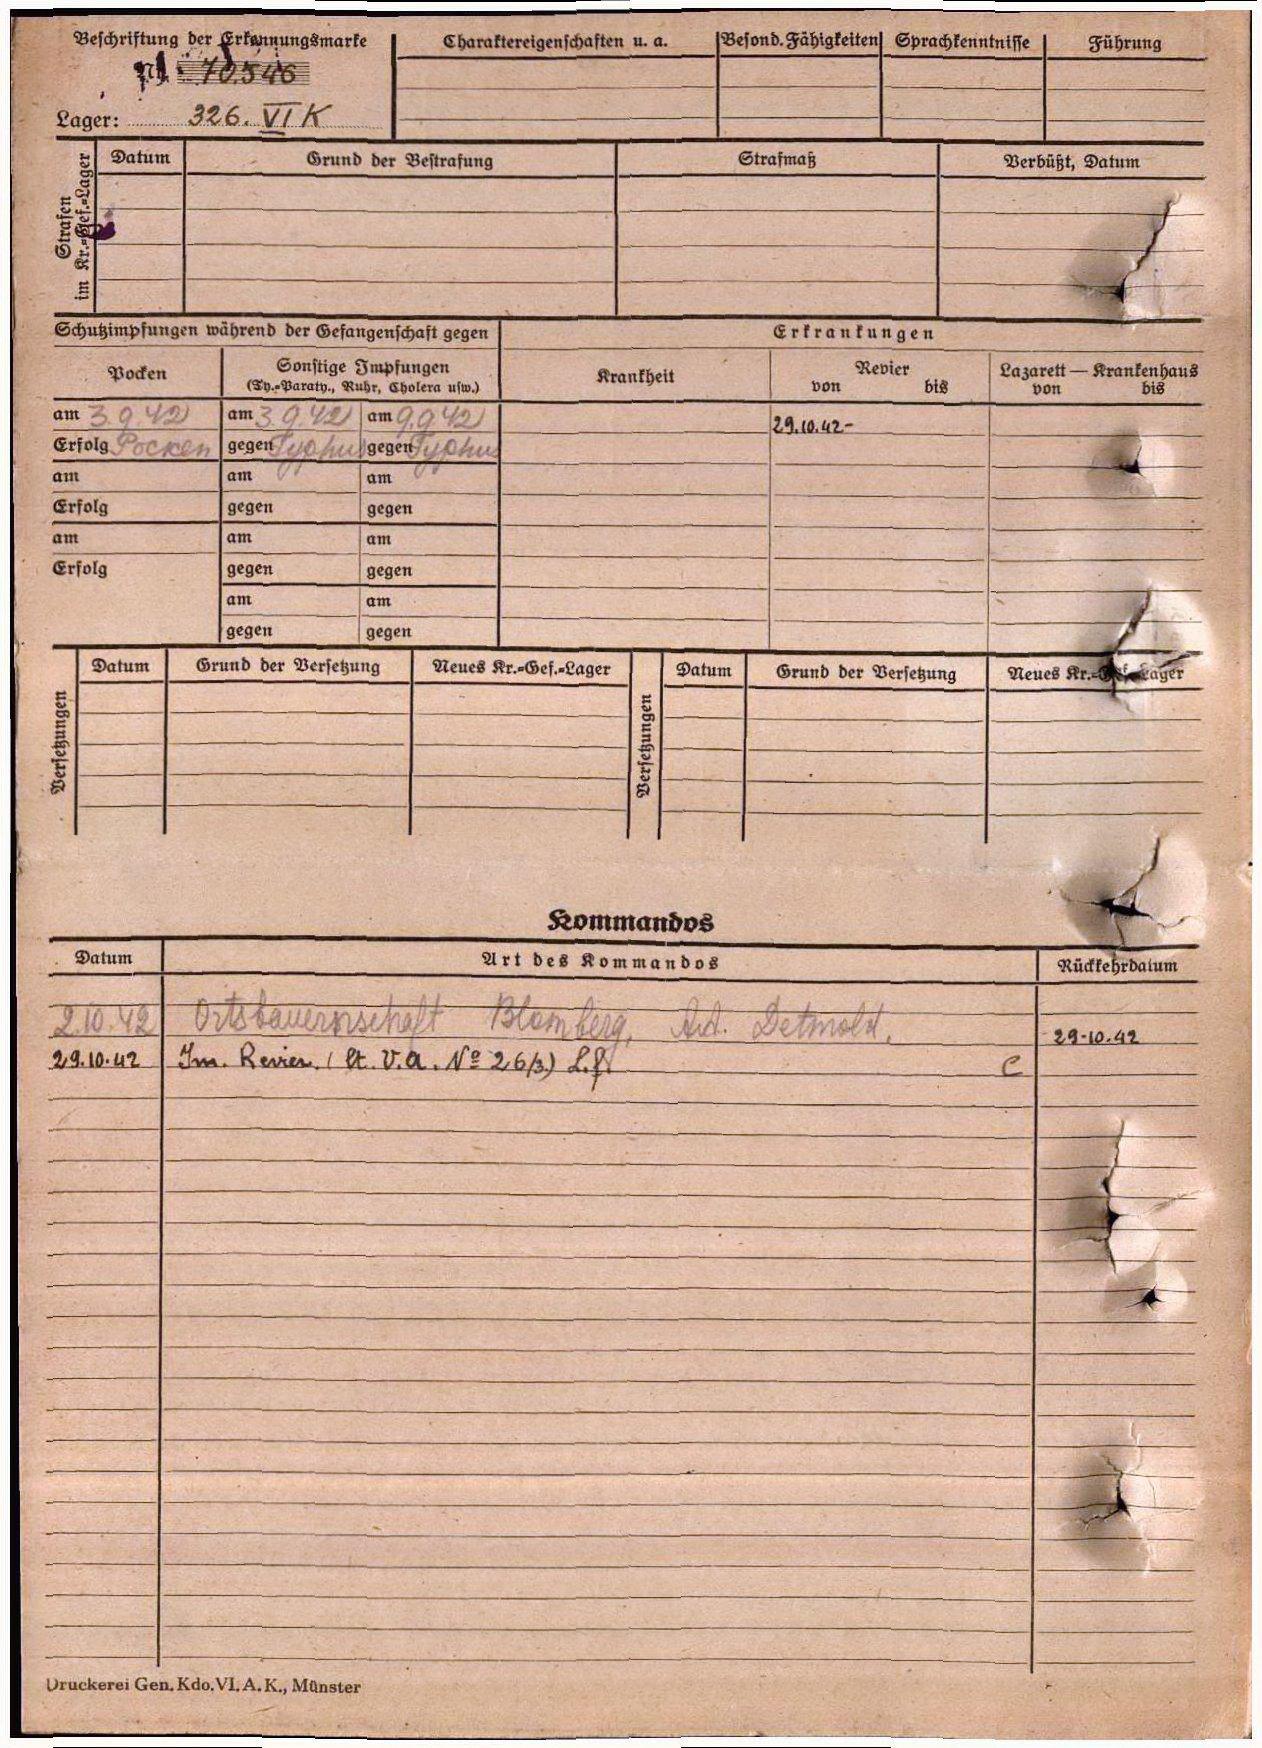 Beschriftung der Erkennungsmarke
Nr. 70546
Lager: 326. VI K
Charaktereigenschaften u. a.
Besond. Fähigkeiten
Sprachkenntnisse
Führung
Strafen
im Kr.=Gef.=Lager
Datum
Grund der Bestrafung
Strafmaß
Verbüßt, Datum
Schutzimpfungen während der Gefangenschaft gegen
Erkrankungen
Pocken
Sonstige Impfungen
(Ty.=Paraty., Ruhr, Cholera usw.)
Krankheit
Revier
von bis
Lazarett — Krankenhaus
von bis
am 3.9.42 am 3.9.42 am 9.9.42
29.10.42-
Erfolg Pocken gegen Typhus gegen Typhus
am am am
Erfolg gegen gegen
am am am
Erfolg gegen gegen
am am
gegen gegen
Versetzungen
Datum
Grund der Versetzung
Neues Kr.=Gef.=Lager
Versetzungen
Datum
Grund der Versetzung
Neues Kr.=Gef.=Lager
Kommandos
Datum
Art des Kommandos
Rückkehrdatum
2.10.42 Ortsbauernschaft Blomberg, Detmold. 29-10.42
29.10.42 Im. Revier. (lt. V.A. No 26/3.) C
Druckerei Gen. Kdo. VI. A. K., Münster